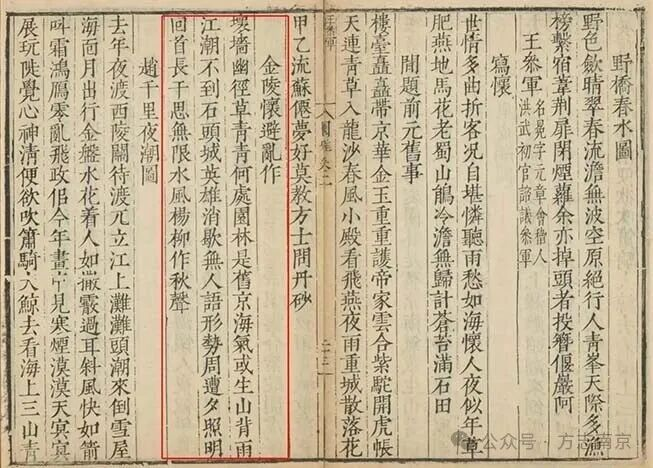 野橋春水圖
野色斂晴翠春流澹無波空原絕行人青峯天際多漁
榜繫宿葦荆扉閉煙蘿余亦掉頭者投簪偃巖阿
王參軍
名冕字元章會稽人
洪武初官諮議參軍
寫懷
世情多曲折客況自堪憐聽雨愁如海懷人夜似年草
肥燕地馬花老蜀山鵑冷澹無歸計蒼苔滿石田
閒題前元舊事
樓臺矗矗帶京華金玉重重護帝家雲合紫駝開虎帳
天連青草入龍沙春風小殿看飛燕夜雨重城散落花
王參軍
甲乙流蘇僊夢好莫教方士問丹砂
金陵懷避亂作
壞墻幽徑草青青何處園林是舊京海氣或生山背雨
江潮不到石頭城英雄消歇無人語形勢周遭夕照明
回首長干思無限水風楊柳作秋聲
趙千里夜潮圖
去年夜渡西陵關待渡兀立江上灘灘頭潮來倒雪屋
海面月出行金盤水花着人如撒霰過耳斜風快如箭
叫霜鴻鴈零亂飛政侣今年畫中見寒煙漠漠天㝠㝠
展玩陡覺心神清便欲吹簫騎大鯨去看海上三山青
公众号·方志南京